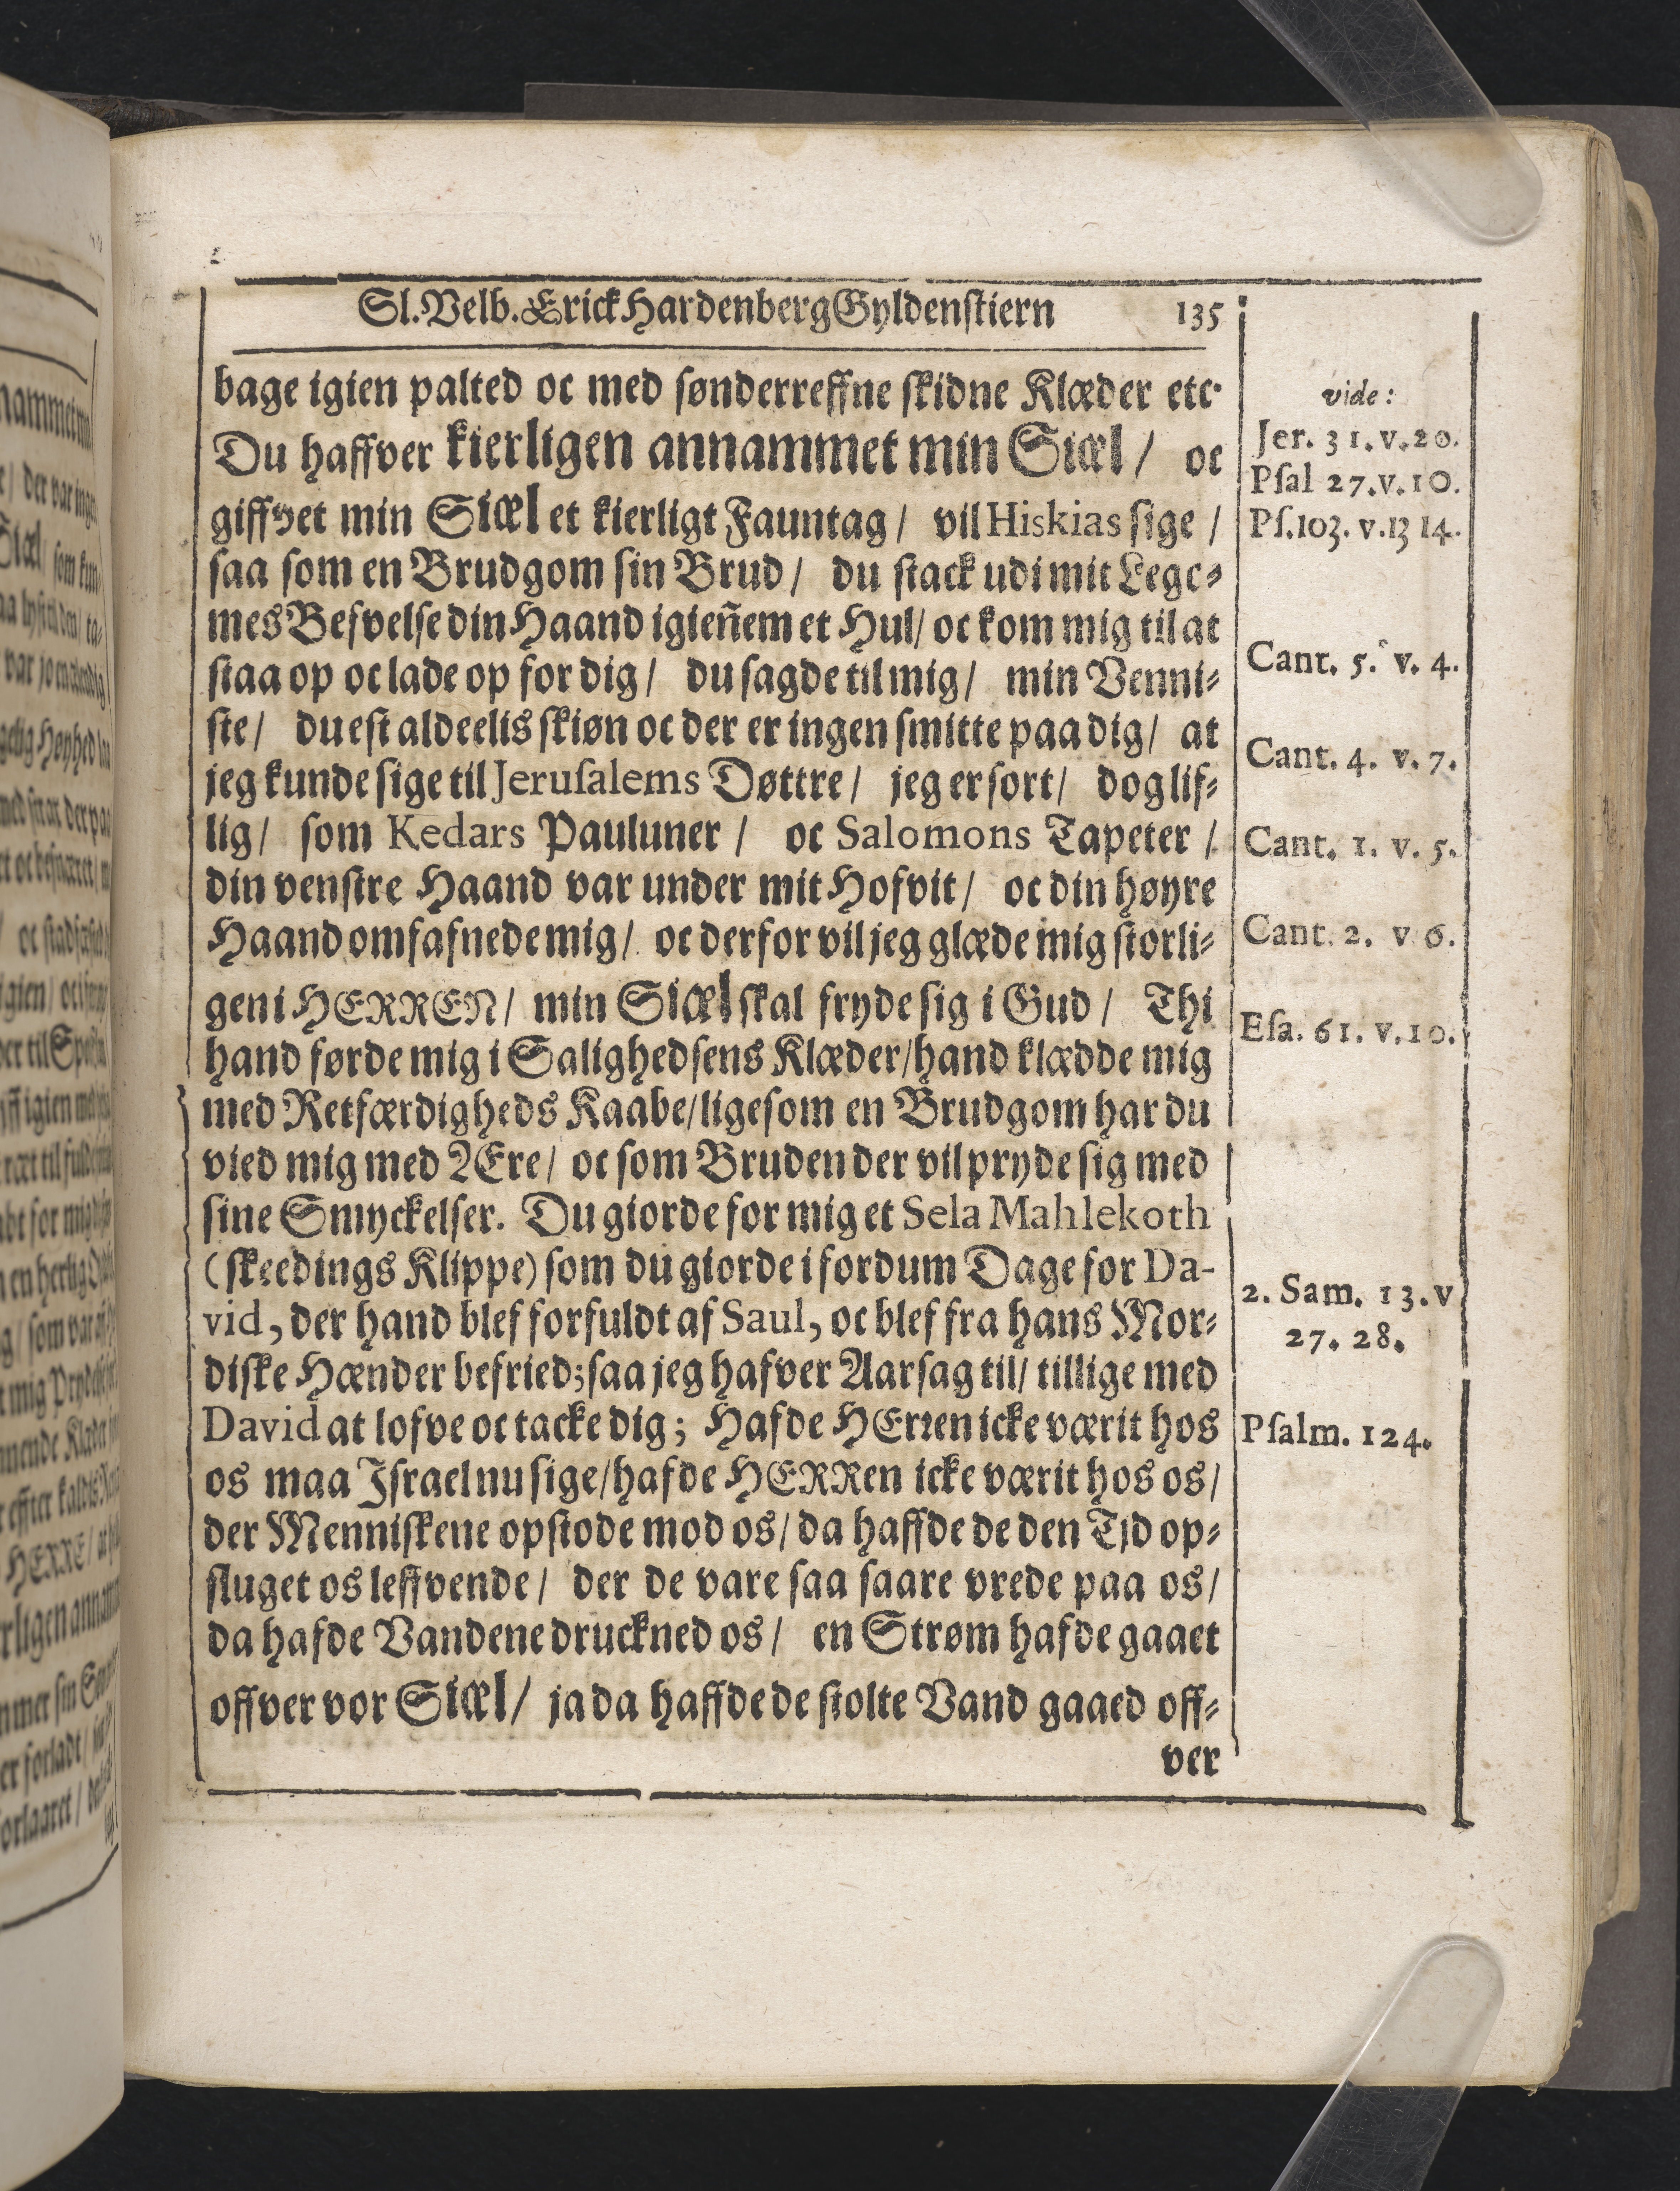 Sl. Velb. Erick Hardenberg Gyldenstiern 135
bage igien palted oc med sønderreffne skidne Klæder etc.
Du haffver kierligen annammet min Siæl / oc
giffvet min Siæl et kierligt Fauntag / vil Hiskias sige /
saa som en Brudgom sin Brud / du stack udi mit Lege-
mes Besvelse din Haand igieñem et Hul / oc kom mig til at
staa op oc lade op for dig / du sagde til mig / min Venni-
ste / du est aldeelis skiøn oc der er ingen smitte paa dig / at
jeg kunde sige til Jerusalems Døttre / jeg er sort / dog lif-
lig / som Kedars Pauluner / oc Salomons Tapeter /
din venstre Haand var under mit Hofvit / oc din høyre
Haand omfafnede mig / oc derfor vil jeg glæde mig storli-
gen i HERREN / min Siæl skal fryde sig i Gud / Thi
hand førde mig i Salighedsens Klæder / hand klædde mig
med Retfærdigheds Kaabe / ligesom en Brudgom har du
vied mig med Ære / oc som Bruden der vil pryde sig med
sine Smyckelser. Du giorde for mig et Sela Mahlekoth
(skeedings Klippe) som du giorde i fordum Dage for Da-
vid, der hand blef forfuldt af Saul, oc blef fra hans Mor-
diske Hænder befried; saa jeg hafver Aarsag til / tillige med
David at lofve oc tacke dig; Hafde HErren icke værit hos
os maa Israel nu sige / hafde HERRen icke værit hos os /
der Menniskene opstode mod os / da haffde de den Tjd op-
sluget os leffvende / der de vare saa saare vrede paa os /
da hafde Vandene druckned os / en Strøm hafde gaaet
offver vor Siæl / ja da haffde de stolte Vand gaaed off-
ver
vide:
Jer. 31. v. 20.
Psal 27. v. 10.
Ps. 103. v. 13 14.
Cant. 5. v. 4.
Cant. 4. v. 7.
Cant. 1. v. 5.
Cant. 2. v 6.
Esa. 61. v. 10.
2. Sam. 13. v
27. 28.
Psalm. 124.